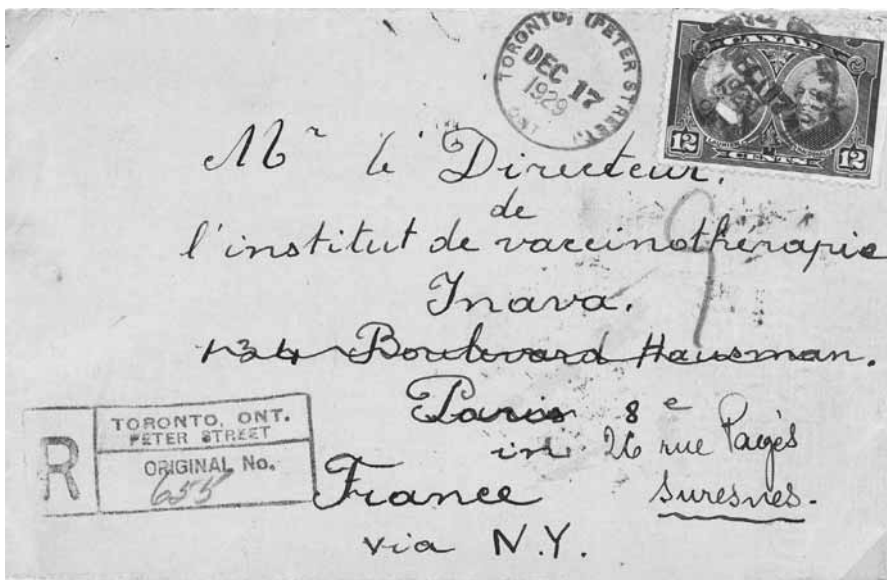 TORONTO, (PETER STREET)
DEC 17
1929
ONT.
CANADA
12 CENTS 12
Mr le Directeur.
de
l'institut de vaccinotherapie
Inava.
134 Boulevard Hausman.
Paris 8e
in 26 rue Pagès
France Suresnes.
via N.Y.
R
TORONTO, ONT.
PETER STREET
ORIGINAL No.
655
9